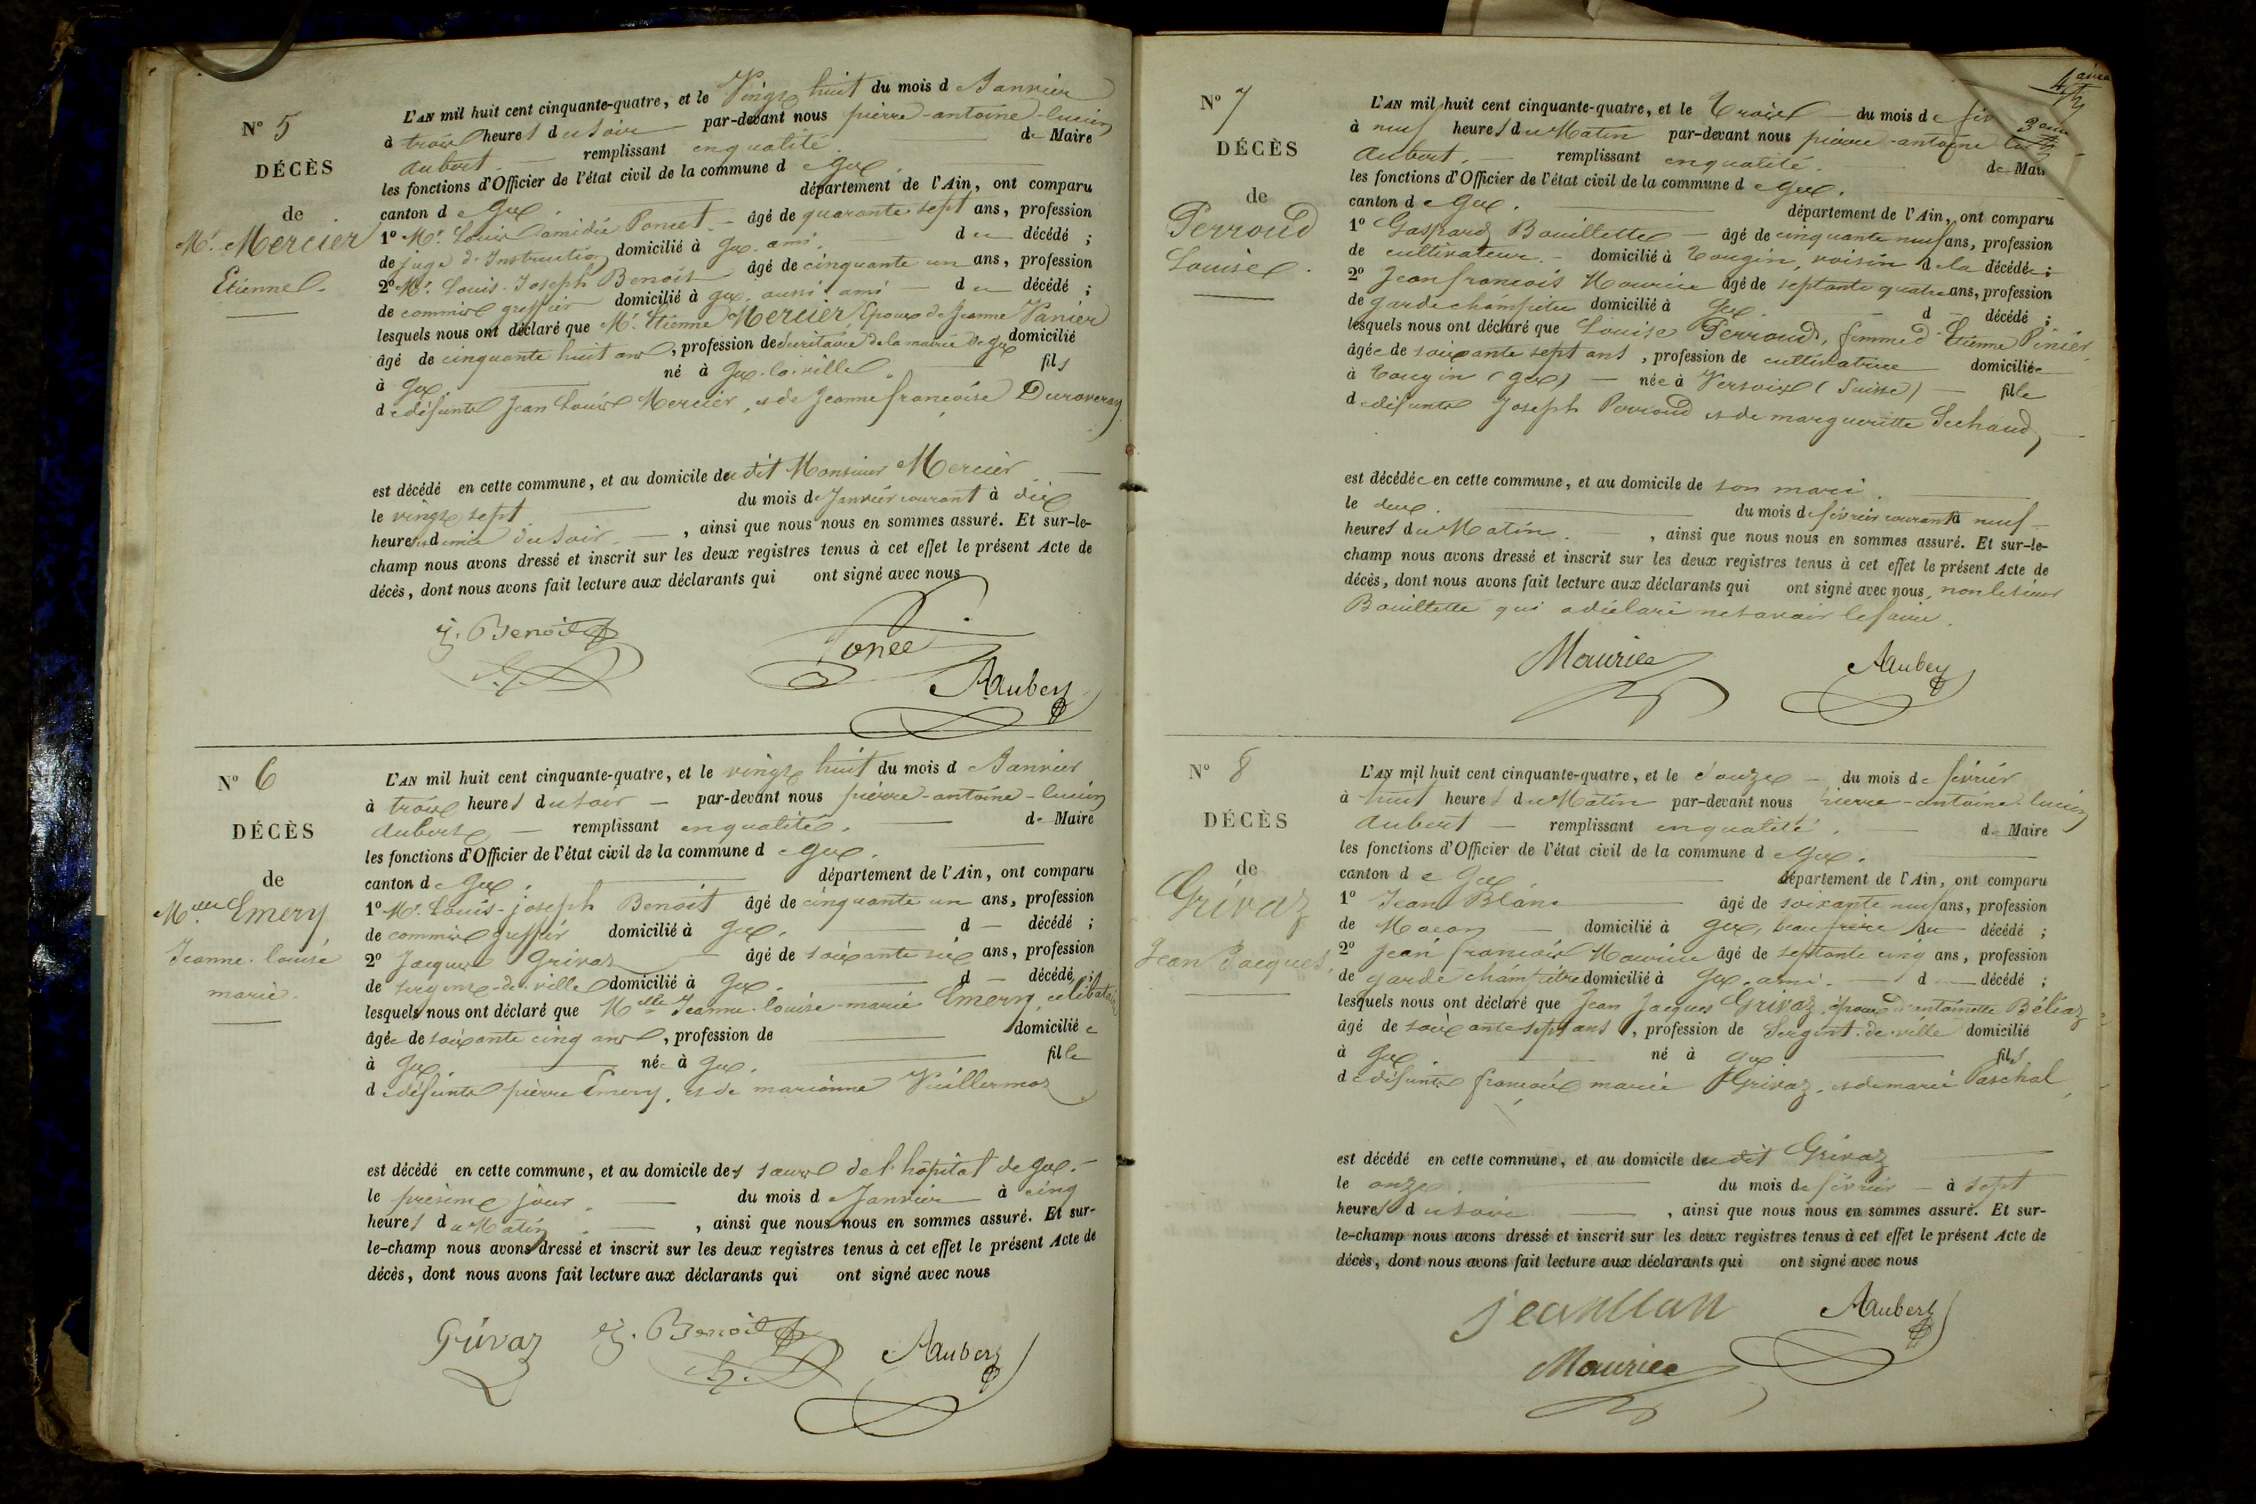 N° 5
DÉCÈS
de
Mr. Mercier
Etienne.
L'AN mil huit cent cinquante-quatre, et le Vingt huit du mois de Janvier
à trois heures du soir par-devant nous pierre-antoine-lucien
aubert remplissant en qualité de Maire
les fonctions d'Officier de l'état civil de la commune de Gex.
canton de Gex. département de l'Ain, ont comparu
1° Mr. Louis amidée Poncet âgé de quarante sept ans, profession
de juge d'Instruction domicilié à Gex. ami. du décédé ;
2° Mr. Louis-Joseph Benoit âgé de cinquante un ans, profession
de commis greffier domicilié à Gex. aussi ami du décédé ;
lesquels nous ont déclaré que Mr. Etienne Mercier Epoux de Jeanne Vanier
âgé de cinquante huit ans, profession de secrétaire de la mairie de Gex domicilié
à Gex. né à Gex-la-ville. fils
de défunts Jean Louis Mercier, et de Jeanne françoise Duraveray
est décédé en cette commune, et au domicile du dit Monsieur Mercier
le vingt sept du mois de Janvier courant à dix
heures et demie du soir, ainsi que nous nous en sommes assuré. Et sur-le-
champ nous avons dressé et inscrit sur les deux registres tenus à cet effet le présent Acte de
décès, dont nous avons fait lecture aux déclarants qui ont signé avec nous
Benoit
Poncet
Aubert
N° 6
DÉCÈS
de
Melle Emery
Jeanne-louise
marie.
L'AN mil huit cent cinquante-quatre, et le vingt huit du mois de Janvier
à trois heures du soir par-devant nous pierre-antoine-lucien
aubert remplissant en qualité. de Maire
les fonctions d'Officier de l'état civil de la commune de Gex.
canton de Gex. département de l'Ain, ont comparu
1° Mr. Louis-joseph Benoit âgé de cinquante un ans, profession
de commis greffier domicilié à Gex. d décédé ;
2° Jacques Grivaz âgé de soixante six ans, profession
de sergent-de-ville domicilié à Gex. d décédé ;
lesquels nous ont déclaré que Melle Jeanne-louise-marie Emery, célibataire
âgée de soixante cinq ans, profession de domiciliée
à Gex. née à Gex. fille
de défunts pierre Emery, et de marianne Vuillermoz
est décédé en cette commune, et au domicile des sœurs de l'hôpital de Gex.
le présent jour. du mois de Janvier à cinq
heures du Matin, ainsi que nous nous en sommes assuré. Et sur-
le-champ nous avons dressé et inscrit sur les deux registres tenus à cet effet le présent Acte de
décès, dont nous avons fait lecture aux déclarants qui ont signé avec nous
Grivaz Benoit Aubert
N° 7
DÉCÈS
de
Perroud
Louise.
L'AN mil huit cent cinquante-quatre, et le trois du mois de fév
à neuf heures du Matin par-devant nous pierre-antoine
aubert. remplissant en qualité. de Mai
les fonctions d'Officier de l'état civil de la commune de Gex.
canton de Gex. département de l'Ain, ont comparu
1° Gaspard Bouillette âgé de cinquante neuf ans, profession
de cultivateur. domicilié à Tougin, voisin de la décédée ;
2° Jean françois Maurice âgé de septante quatre ans, profession
de garde champêtre domicilié à Gex. d décédé ;
lesquels nous ont déclaré que Louise Perroud, femme d'Etienne Pinier
âgée de soixante sept ans, profession de cultivatrice domiciliée
à Tougin (Gex) née à Versoix (Suisse) fille
de défunts Joseph Perroud et de margueritte Sechaud
est décédée en cette commune, et au domicile de son mari.
le deux. du mois de février courant à neuf
heures du Matin., ainsi que nous nous en sommes assuré. Et sur-le-
champ nous avons dressé et inscrit sur les deux registres tenus à cet effet le présent Acte de
décès, dont nous avons fait lecture aux déclarants qui ont signé avec nous, non le sieur
Bouillette qui a déclaré ne savoir le faire.
Maurice
Aubert
N° 8
DÉCÈS
de
Grivaz
Jean Jacques
L'AN mil huit cent cinquante-quatre, et le douze du mois de février
à huit heures du Matin par-devant nous pierre-antoine-lucien
aubert remplissant en qualité. de Maire
les fonctions d'Officier de l'état civil de la commune de Gex.
canton de Gex département de l'Ain, ont comparu
1° Jean Blanc âgé de soixante neuf ans, profession
de Maçon domicilié à Gex, beau frère du décédé ;
2° Jean françois Maurice âgé de septante cinq ans, profession
de garde champêtre domicilié à Gex. ami. d décédé ;
lesquels nous ont déclaré que Jean Jacques Grivaz, époux d'antoinette Béliaz
âgé de soixante sept ans, profession de Sergent-de-ville domicilié
à Gex. né à Gex fils
de défunts françois marie Grivaz, et de marie Paschal,
est décédé en cette commune, et au domicile du dit Grivaz
le onze. du mois de février à sept
heures du soir, ainsi que nous nous en sommes assuré. Et sur-
le-champ nous avons dressé et inscrit sur les deux registres tenus à cet effet le présent Acte de
décès, dont nous avons fait lecture aux déclarants qui ont signé avec nous
jean Blan
Aubert
Maurice